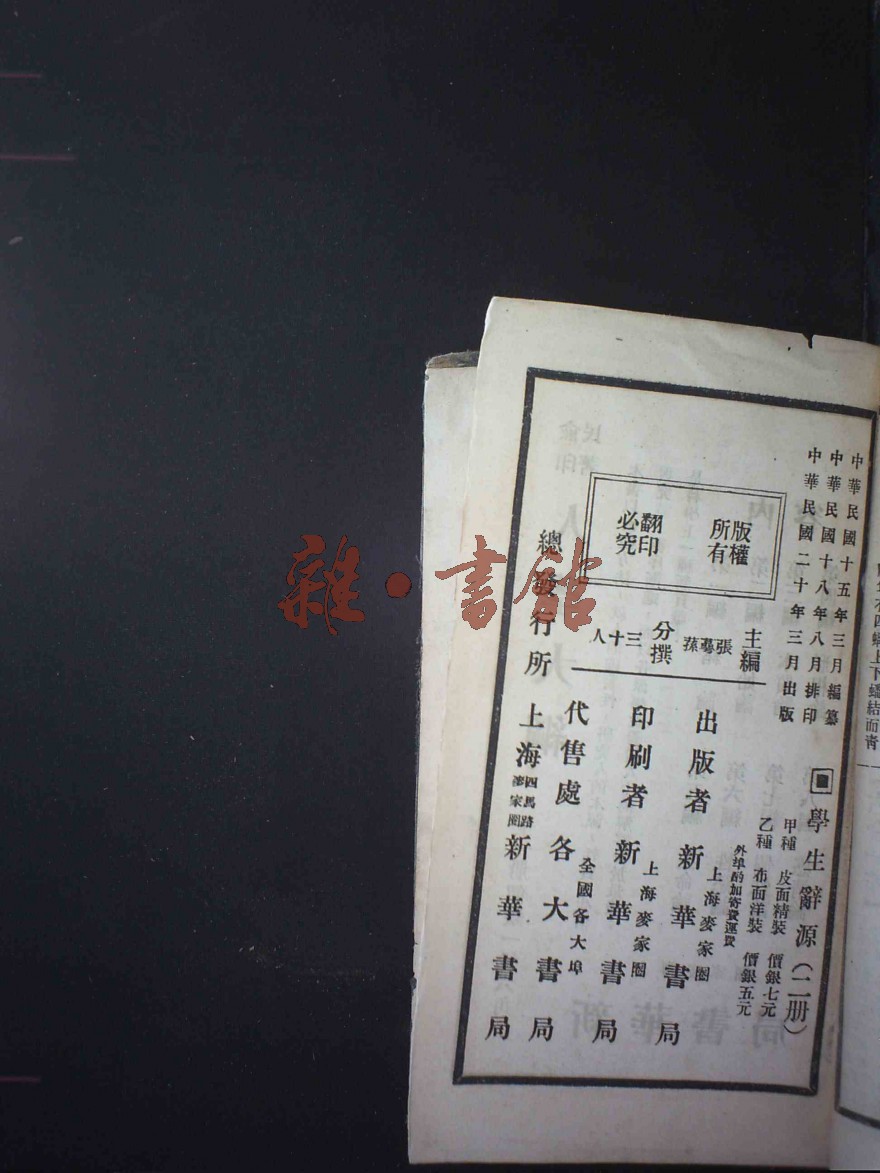 中華民國十五年三月編纂
中華民國十八年八月排印
中華民國二十年三月出版
學生辭源(二册)
甲種 皮面精裝 價銀七元
乙種 布面洋裝 價銀五元
外埠酌加寄費運費
版權所有
翻印必究
主編 張蕚蓀
分撰 三十人
出版者 上海麥家圈 新華書局
印刷者 上海麥家圈 新華書局
代售處 全國各大埠 各大書局
總發行所 上海 四馬路麥家圈 新華書局
雜·書館